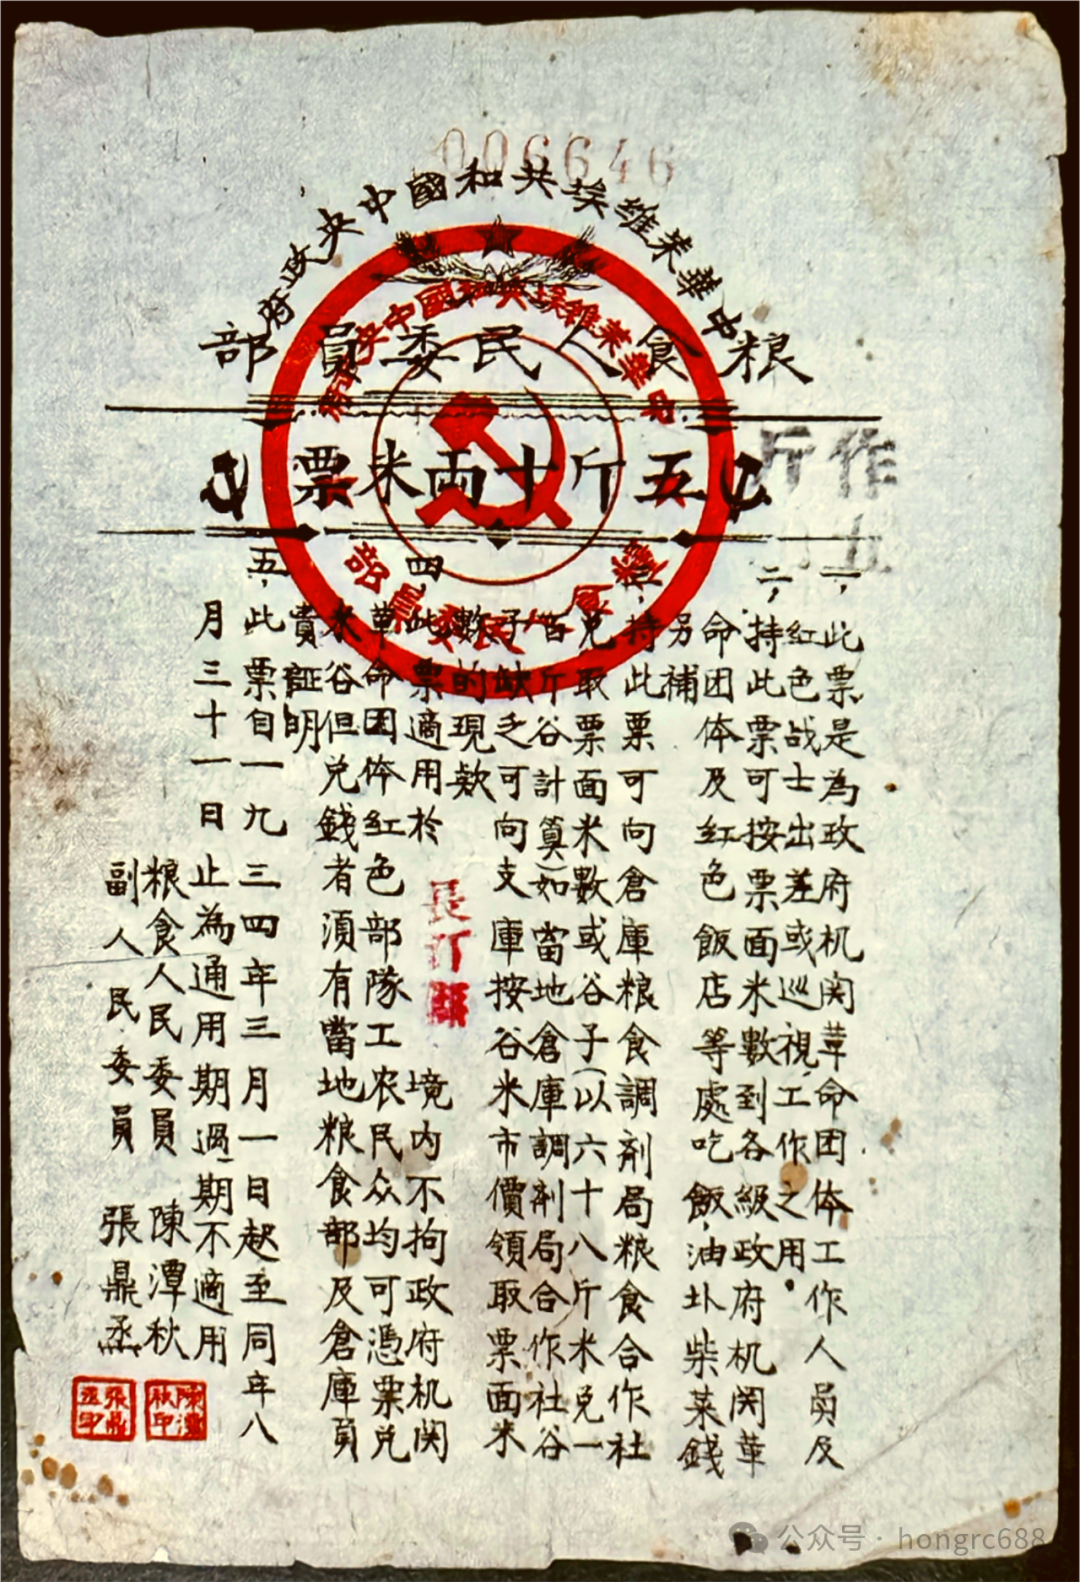 006646
中華苏維埃共和國中央政府
粮食人民委員部
五斤十兩米票
中華苏維埃共和國中央政府
粮食人民委員部
作五斤
一，此票是為政府机関革命团体工作人員及
紅色战士出差或巡視工作之用。
二，持此票可按票面米數到各級政府机関革
命团体及红色飯店等處吃飯，油圤柴菜錢
另補
三，持此票可向倉庫粮食調剂局粮食合作社
兑取票面米數或谷子（以六十八斤米兑一
百斤谷計算）如當地倉庫調剂局合作社谷
子缺乏可向支庫按谷米市價領取票面米
數的現欵
四，此票適用於長汀縣境内不拘政府机関
革命团体红色部隊工农民众均可憑票兑
米谷但兑錢者須有當地粮食部及倉庫負
責証明
五，此票自一九三四年三月一日起至同年八
月三十一日止為通用期過期不適用
粮食人民委員 陳潭秋
副人民委員 張鼎丞
陳潭秋印
張鼎丞印
公众号 · hongrc688